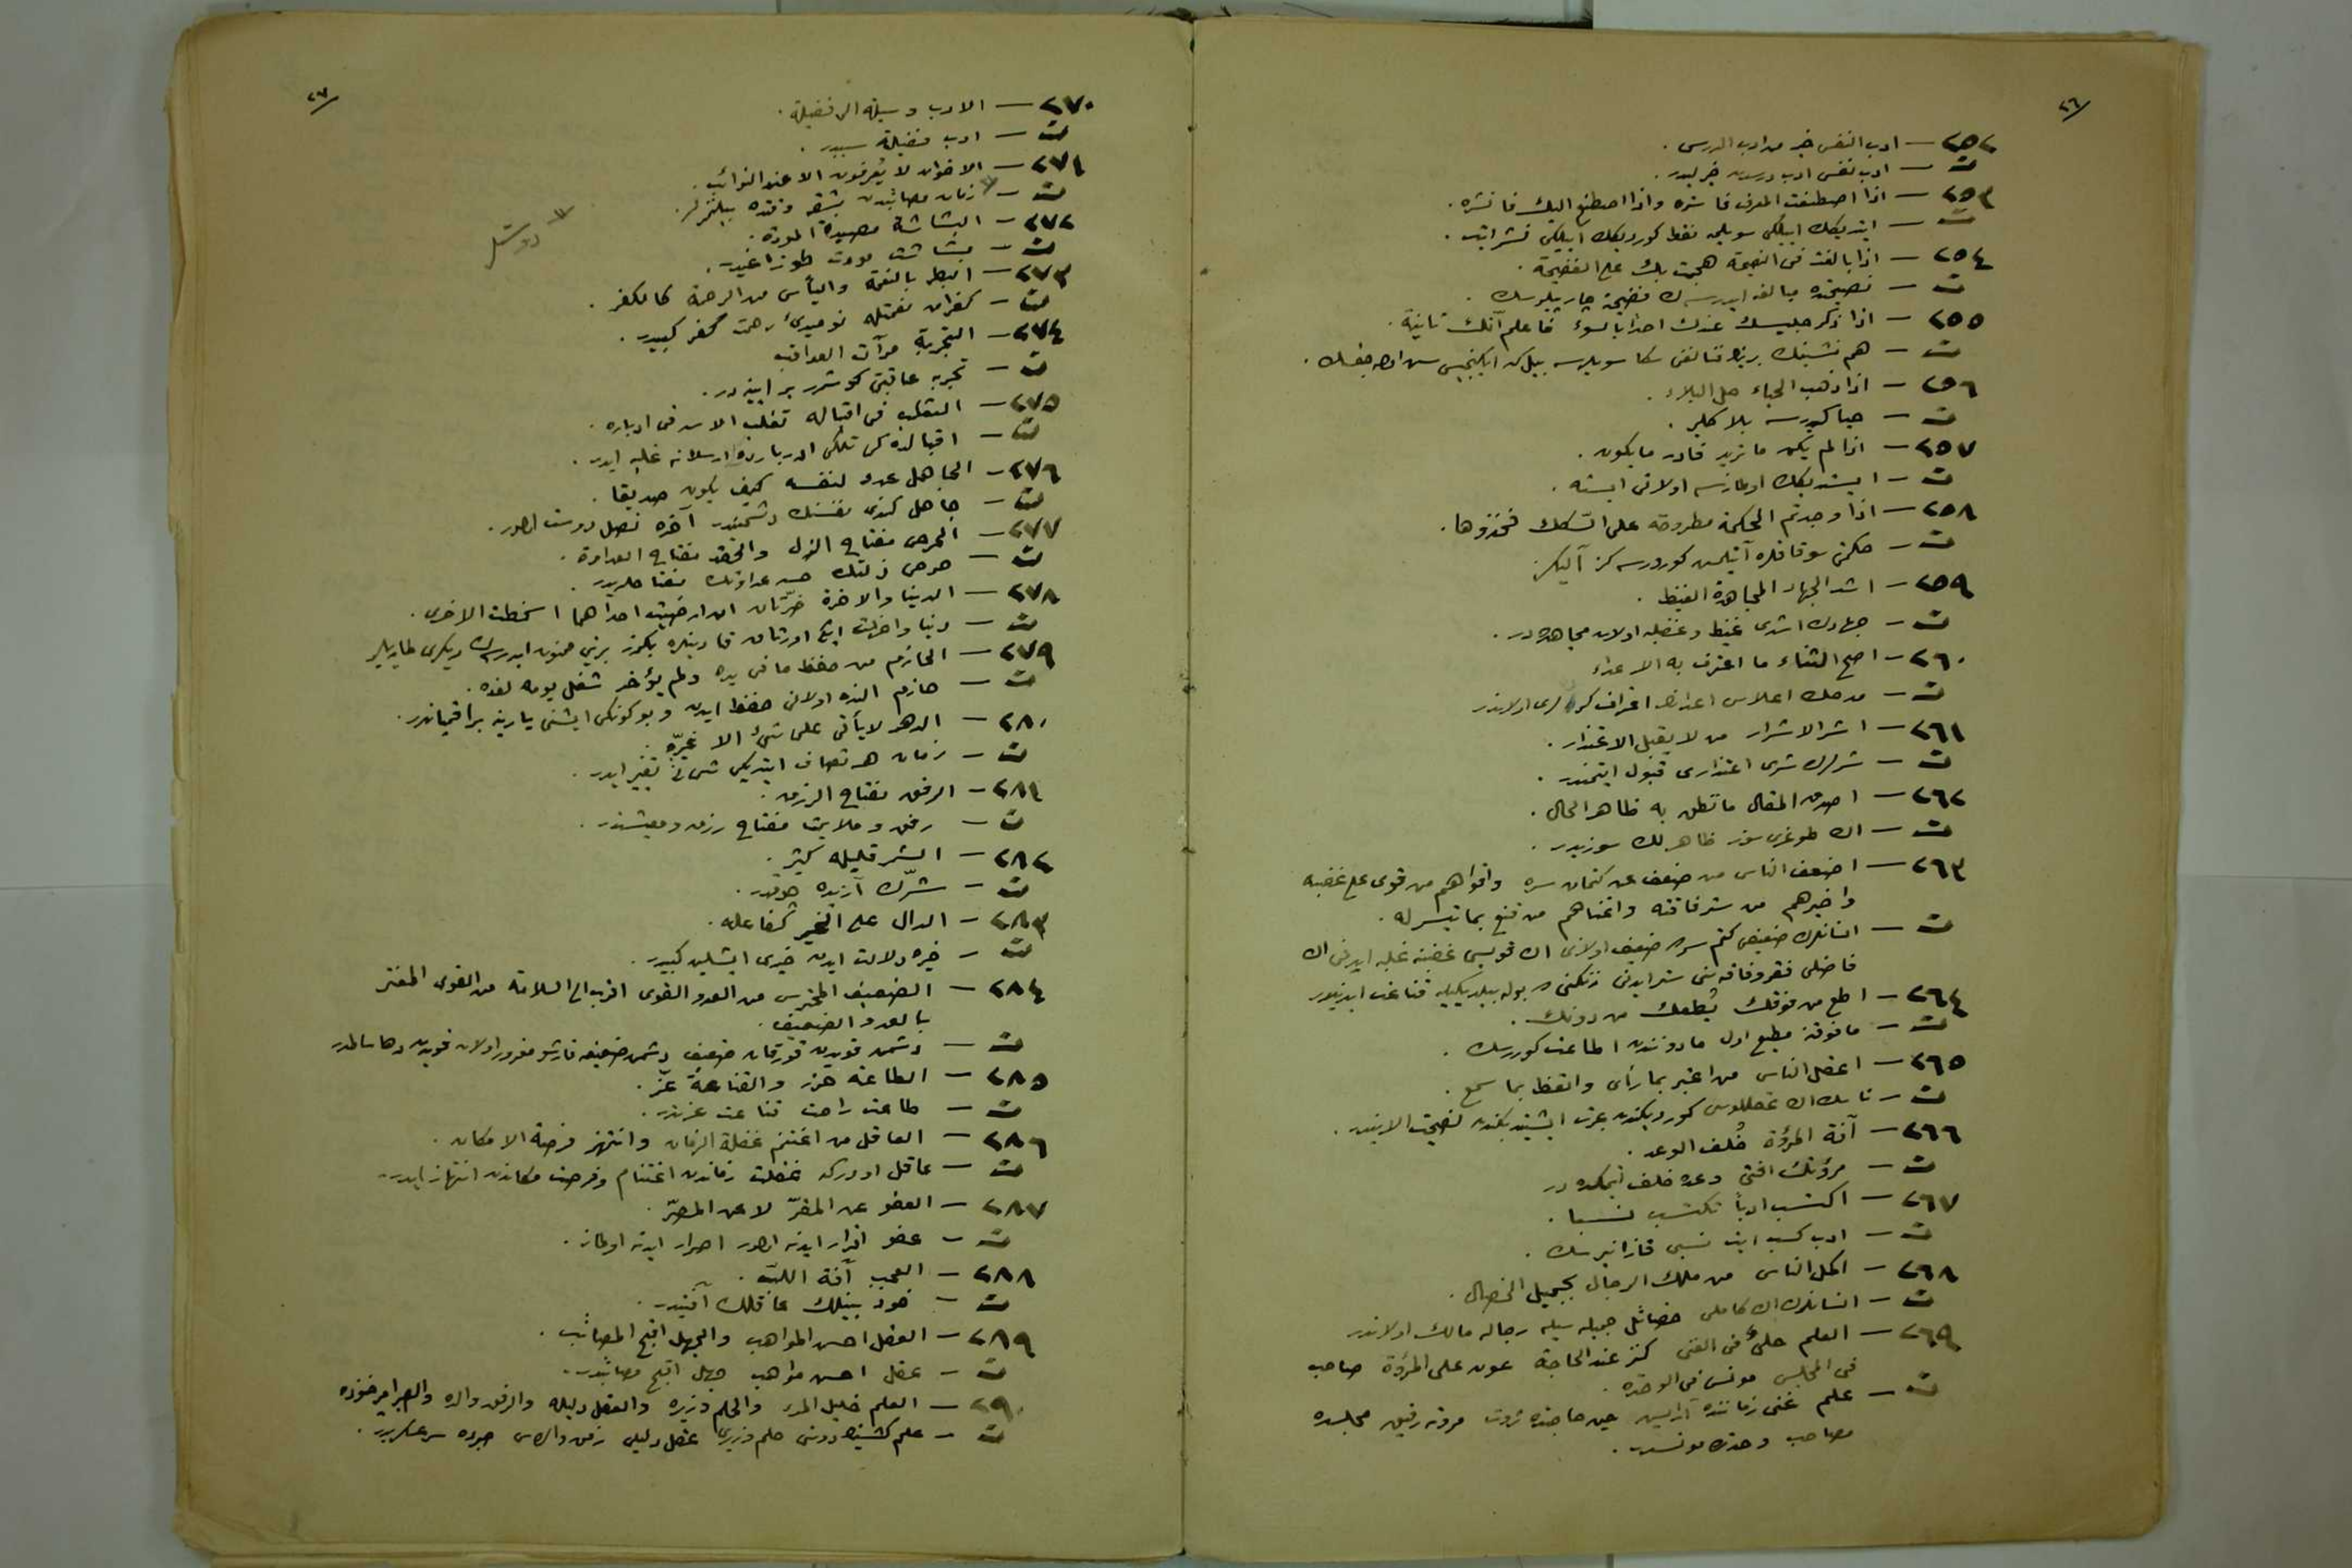 ٢٦
٢٥٢ — ادب النفس خير من ادب الدرس .
ت — ادب نفس ادب درسدن خيرليدر .
٢٥٣ — اذا اصطنعت المعرف فاستره واذا اصطنع اليك فانشره .
ت — ايتديكك ايلكى سويلمه فقط كورديكك ايلكى نشر ايت .
٢٥٤ — اذا بالغت فى النصيحة هجمت بك على الفضيحة .
ت — نصيحتده مبالغه ايدرسه ك فضيحته چارپيلورسك .
٢٥٥ — اذا ذكر جليسك عندك احدا بالسوء فاعلم انك ثانية .
ت — هم نشينك برينڭ فنالغنى سكا سويلرسه بيل كه ايكنجيسى سن اوله جقسك .
٢٥٦ — اذا ذهب الحياء حل البلاء .
ت — حيا كيدرسه بلا كلير .
٢٥٧ — اذا لم يكن ما تريد فادر ما يكون .
ت — ايستديكك اولمازسه اولانى ايسته .
٢٥٨ — اذا وجدتم الحكمة مطروحة على السكك فخذوها .
ت — حكمتى سوقاقلره آتيلمش كورورسه كز آليكز .
٢٥٩ — اشد الجهاد المجاهدة الغيظ .
ت — جهادك اشدى غيظ وغضبله اولان مجاهده در .
٢٦٠ — اصح الثناء ما اعترف به الاعداء
ت — مدحك اعلاسى اعدانڭ اعتراف كرده لرى اولاندر
٢٦١ — اشر الاشرار من لا يقبل الاعتذار .
ت — شرلرك شرى اعتذارى قبول ايتميندر .
٢٦٢ — اصدق المقال ما نطق به ظاهر الحال .
ت — اك طوغرى سوز ظاهر لك سوزيدر .
٢٦٣ — اضعف الناس من ضعف عن كتمان سره واقواهم من قوى على غضبه
واخيرهم من ستر فاقته واغناهم من قنع بما تيسر له .
ت — انسانلرك ضعيفى كتم سرده ضعيف اولانى اك قويسى غضبنه غلبه ايدنى اك
فاضلى فقر وفاقه سنى ستر ايدنى زنكينى ده بوله بيلديكيله قناعت ايدنيدر
٢٦٤ — اطع من فوقك يطعك من دونك .
ت — مافوقنه مطيع اول مادونندن اطاعت كوررسك .
٢٦٥ — اعقل الناس من اعتبر بما رأى واتعظ بما سمع .
ت — ناسك اك عقللوسى كورديكندن عبرت ايشيتديكندن نصيحت الانيدر .
٢٦٦ — آفة المروءة خُلف الوعد .
ت — مروءتك افتى وعده خلف ايتمكده در
٢٦٧ — اكتسب ادباً تكتسب نسبا .
ت — ادب كسب ايت نسبى قازانيرسك .
٢٦٨ — اكمل الناس من ملك الرجال بجميل الخصال .
ت — انسانلرك اك كاملى خصائل جميله سيله رجاله مالك اولاندر
٢٦٩ — العلم حلىٌ فى الغنى كنز عند الحاجة عون على المروءة صاحب
فى المجلس مونس فى الوحده .
ت — علم غنى زماننده آرايش حين حاجتده ثروت مروته رفيق مجلسده
مصاحب وحدتده مونسدر .
٢٧
٢٧٠ — الادب وسيلة الى فضيلة .
ت — ادب فضيلته سببدر .
٢٧١ — الاخوان لا يُعرفون الا عند النوائب .
ت — زمان مصائبدن بشقه وقتده بيلنمزلر .
دوستلر
٢٧٢ — البشاشة مصيدة المودة .
ت — بشاشت مودت طوزاغيدر .
٢٧٣ — البطر بالنعمة واليأس من الرحمة كالكفر .
ت — كفران نعمتله نوميدئ رحمت كفر كبيدر .
٢٧٤ — التجربة مرآت العواقب
ت — تجربه عاقبتى كوسترر بر آيينه در .
٢٧٥ — الثعلب فى اقباله تغلب الاسد فى ادباره .
ت — اقبالده كى تلكى ادبارده ارسلانه غلبه ايدر .
٢٧٦ — الجاهل عدو لنفسه كيف يكون صديقا .
ت — جاهل كندى نفسنك دشمنيدر آخره نصل دوست اولور .
٢٧٧ — الحرص مفتاح الذل والحقد مفتاح العداوة .
ت — حرص ذلتك حسد عداوتك مفتاحلريدر .
٢٧٨ — الدنيا والاخرة ضرّتان ان ارضيت احداهما اسخطت الاخرى .
ت — دنيا واخرت ايكى اورتاق قادينلره بكزر برينى ممنون ايدرسك ديكرى طاريلير
٢٧٩ — الحازم من حفظ ما فى يده ولم يؤخر شغل يومه لغده .
ت — حازم النده اولانى حفظ ايدن وبوكونكى ايشنى يارينه براقمياندر .
٢٨٠ — الدهر لا يأتى على شئ الا غيّره .
ت — زمان هر تصادف ايتديكى شى ئى تغيير ايدر .
٢٨١ — الرفق مفتاح الرزق .
ت — رفق وملايمت مفتاح رزق ومعيشتدر .
٢٨٢ — الشر قليله كثير .
ت — شرّك آزيده چوقدر .
٢٨٣ — الدال على الخير كفاعله .
ت — خيره دلالت ايدن خيرى ايشلين كبيدر .
٢٨٤ — الضعيف المحترس من العدو القوى اقرب الى السلامة من القوى المغتر
بالعدو الضعيف .
ت — دشمن قويدن قورقان ضعيف دشمن ضعيفه قارشو مغرور اولان قويدن دها سالمدر
٢٨٥ — الطاعة حرز والقناعة عزّ .
ت — طاعت راحت قناعت عزتدر .
٢٨٦ — العاقل من اغتنم غفلة الزمان وانتهز فرصة الامكان .
ت — عاقل اودركه غفلت زماندن اغتنام وفرصت مكاندن انتهاز ايدر .
٢٨٧ — العفو عن المقرّ لا عن المصرّ .
ت — عفو اقرار ايدنه اولور اصرار ايدنه اولماز .
٢٨٨ — العجب آفة اللبّ .
ت — خود بينلك عاقللك آفتيدر .
٢٨٩ — العقل احسن المواهب والجهل اقبح المصائب .
ت — عقل احسن مواهب جهل اقبح مصائبدر .
٢٩٠ — العلم خليل المرء والحلم وزيره والعقل دليله والرفق والده والصبر امير جنوده
ت — علم كشينڭ دوستى حلم وزيرى عقل دليلى رفق والدى صبرده سرعسكريدر .